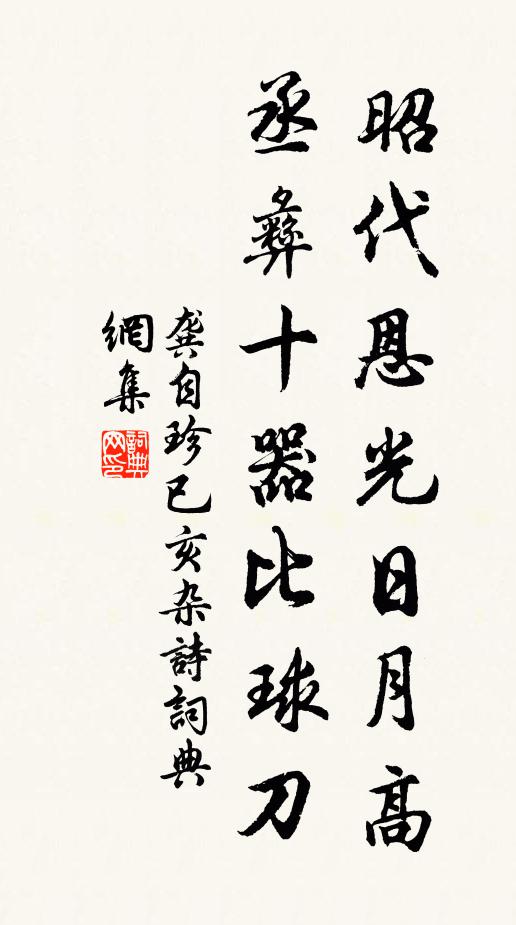 昭代恩光日月高
丞彝十器比球刀
龔自珍己亥杂詩詞典
網集
詞典网印